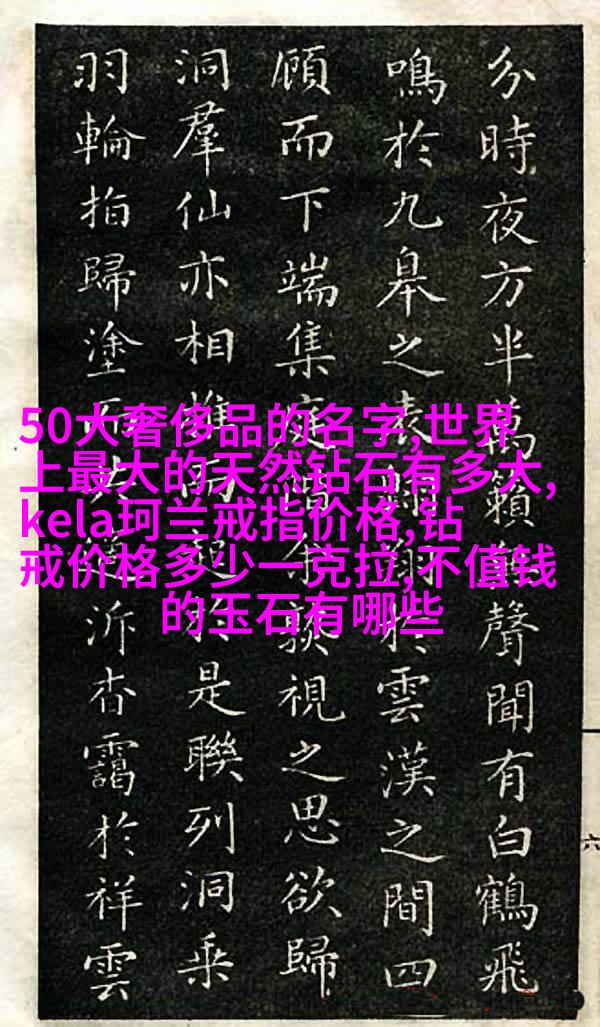 分時夜方半萬籟聲聞有白鶴飛
鳴於九皋之表翔於雲漢之間四
顧而下端集庭余視之思欲歸
洞羣仙亦相於是聯列洞乘
羽輪指歸塗而泝杳靄於祥雲
六
50大奢侈品的名字,世界
上最大的天然钻石有多大,
kela珂兰戒指价格,钻
戒价格多少一克拉,不值钱
的玉石有哪些